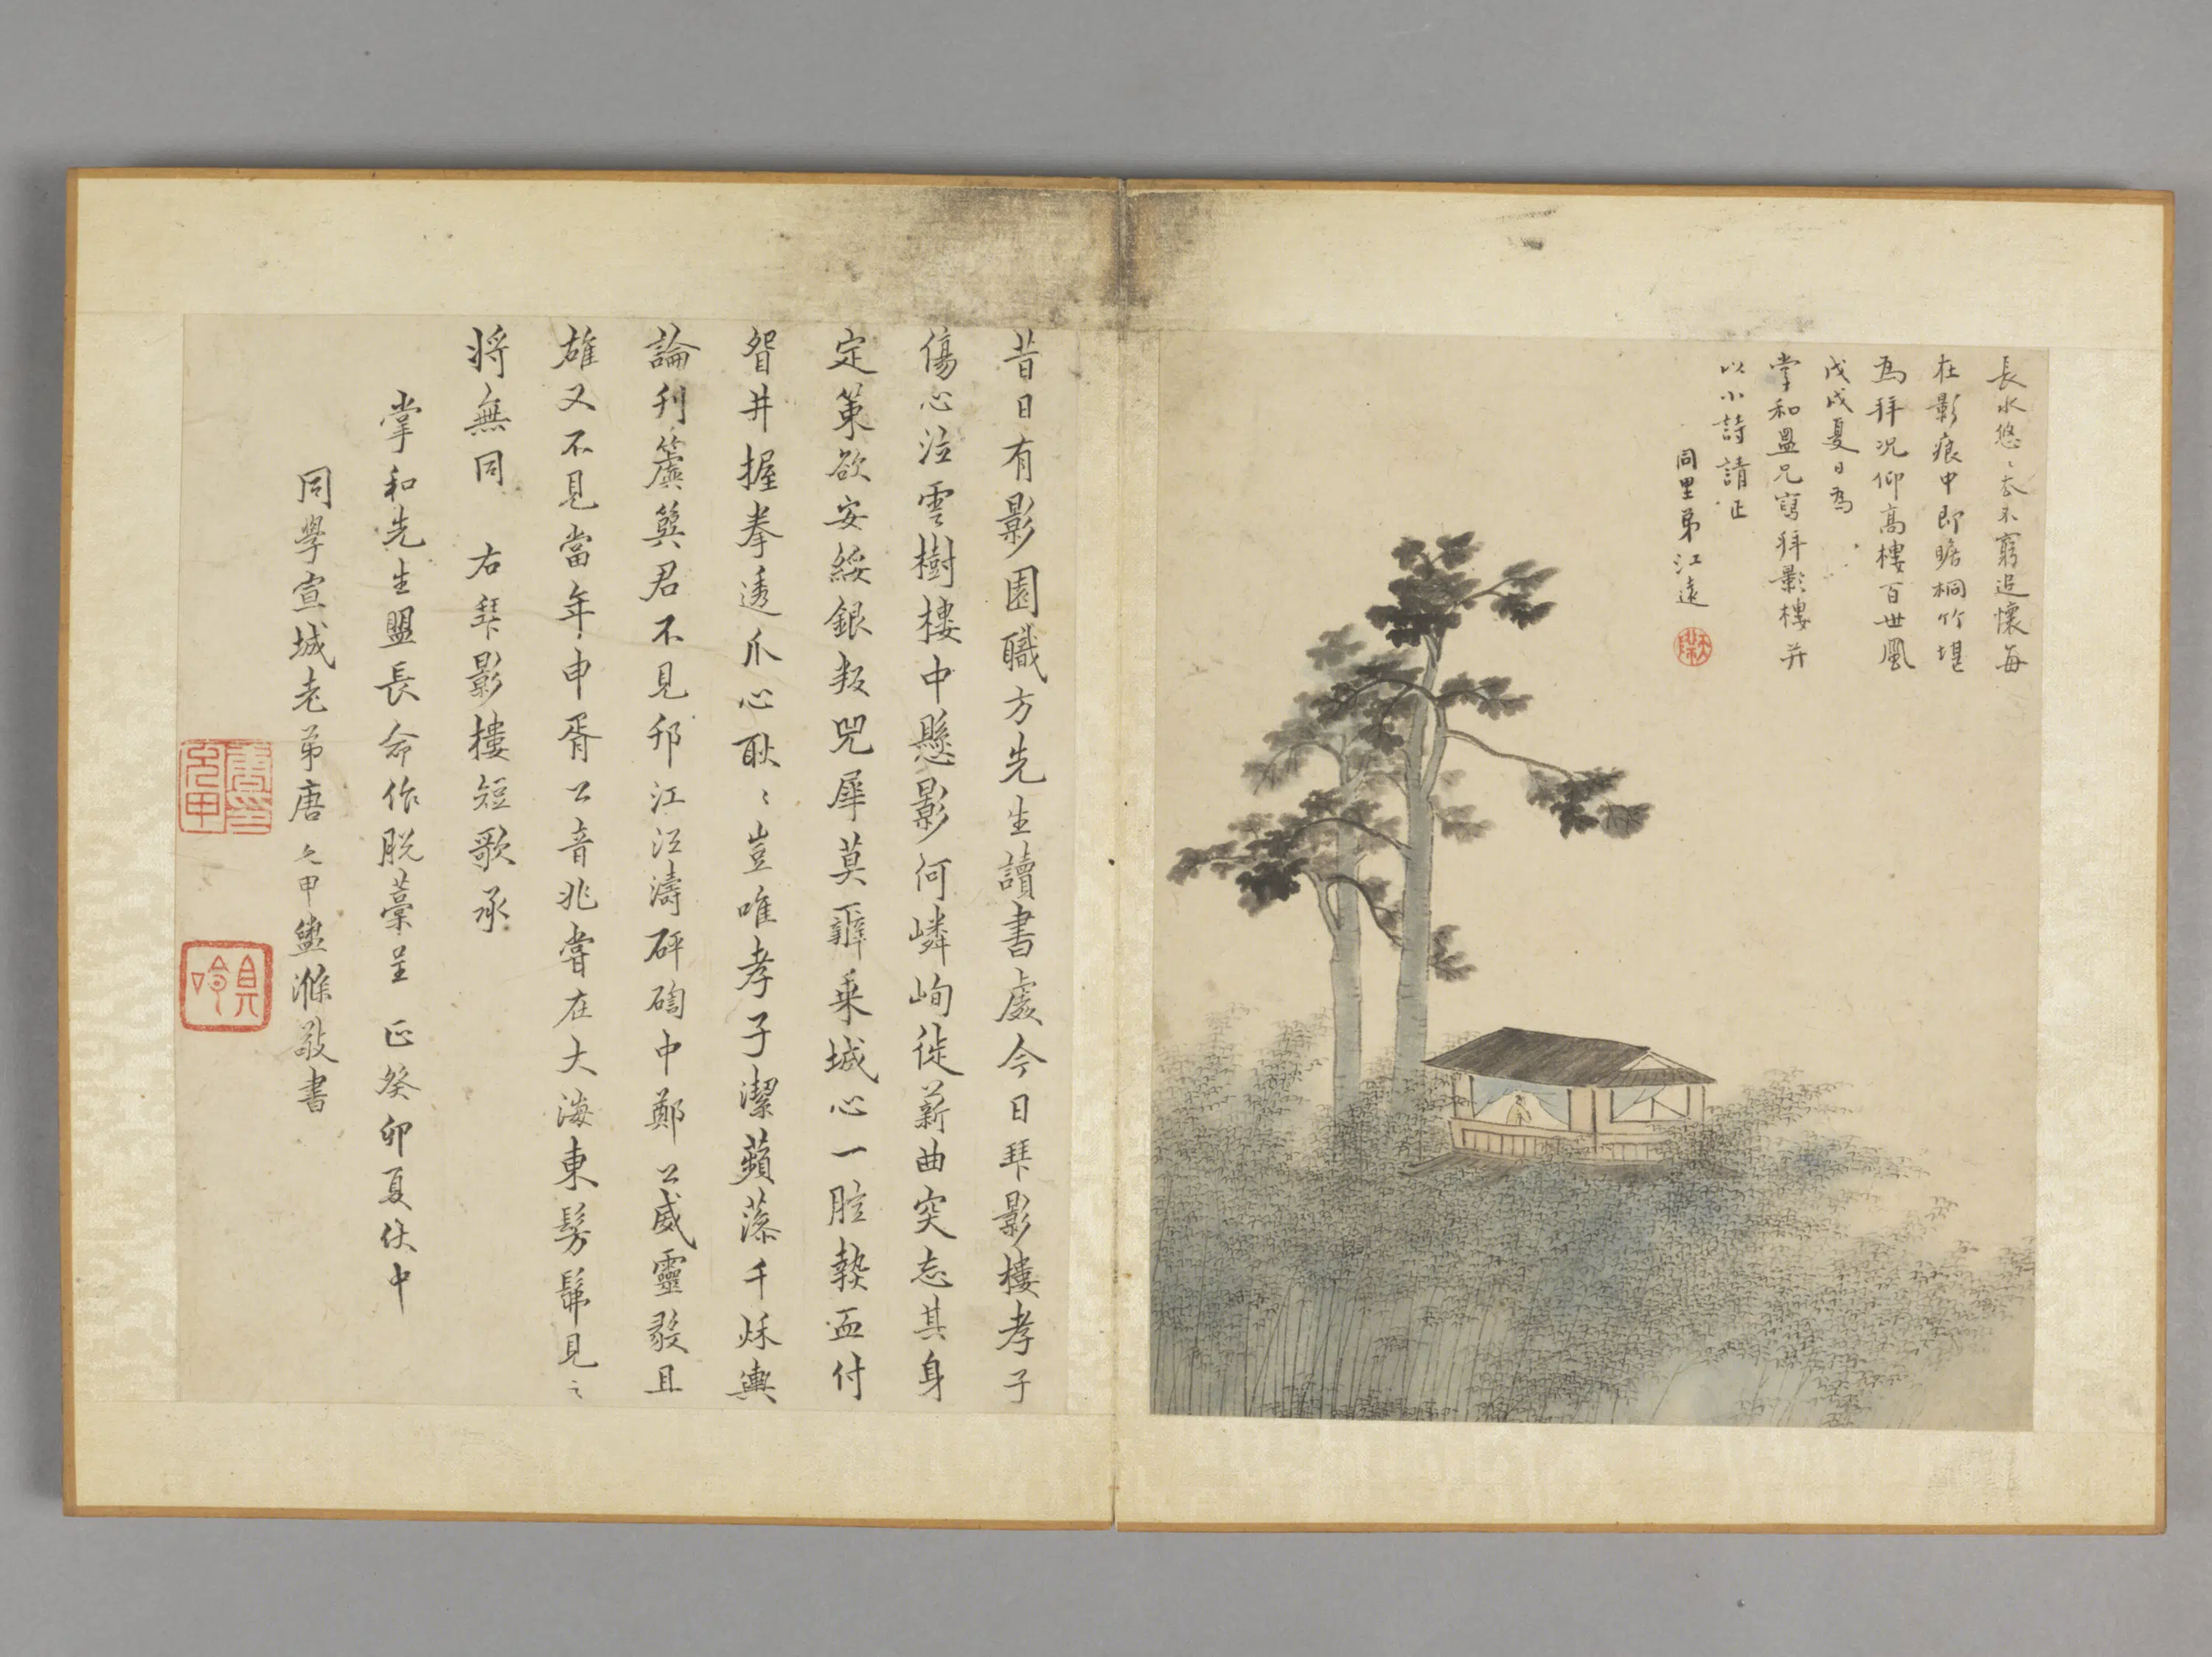 長水悠〻去不窮追懷每
在影痕中即瞻桐竹堪
為拜況仰高樓百世風
戊戌夏日為
掌和盟兄寫拜影樓并
以小詩請正
同里弟江遠
昔日有影園職方先生讀書處今日拜影樓孝子
傷心泣雲樹樓中懸影何嶙峋徙薪曲突忘其身
定策欲安綏銀叛兕犀莫辭乘城心一腔熱血付
眢井握拳透爪心耿〻豈唯孝子潔蘋藻千秋輿
論刊簴簨君不見邗江江濤砰磕中鄭公威靈毅且
雄又不見當年申胥公音兆嘗在大海東髣髴見之
將無同 右拜影樓短歌承
掌和先生盟長命作脫藁呈 正癸卯夏仗中
同學宣城老弟唐允甲鹽滌敬書